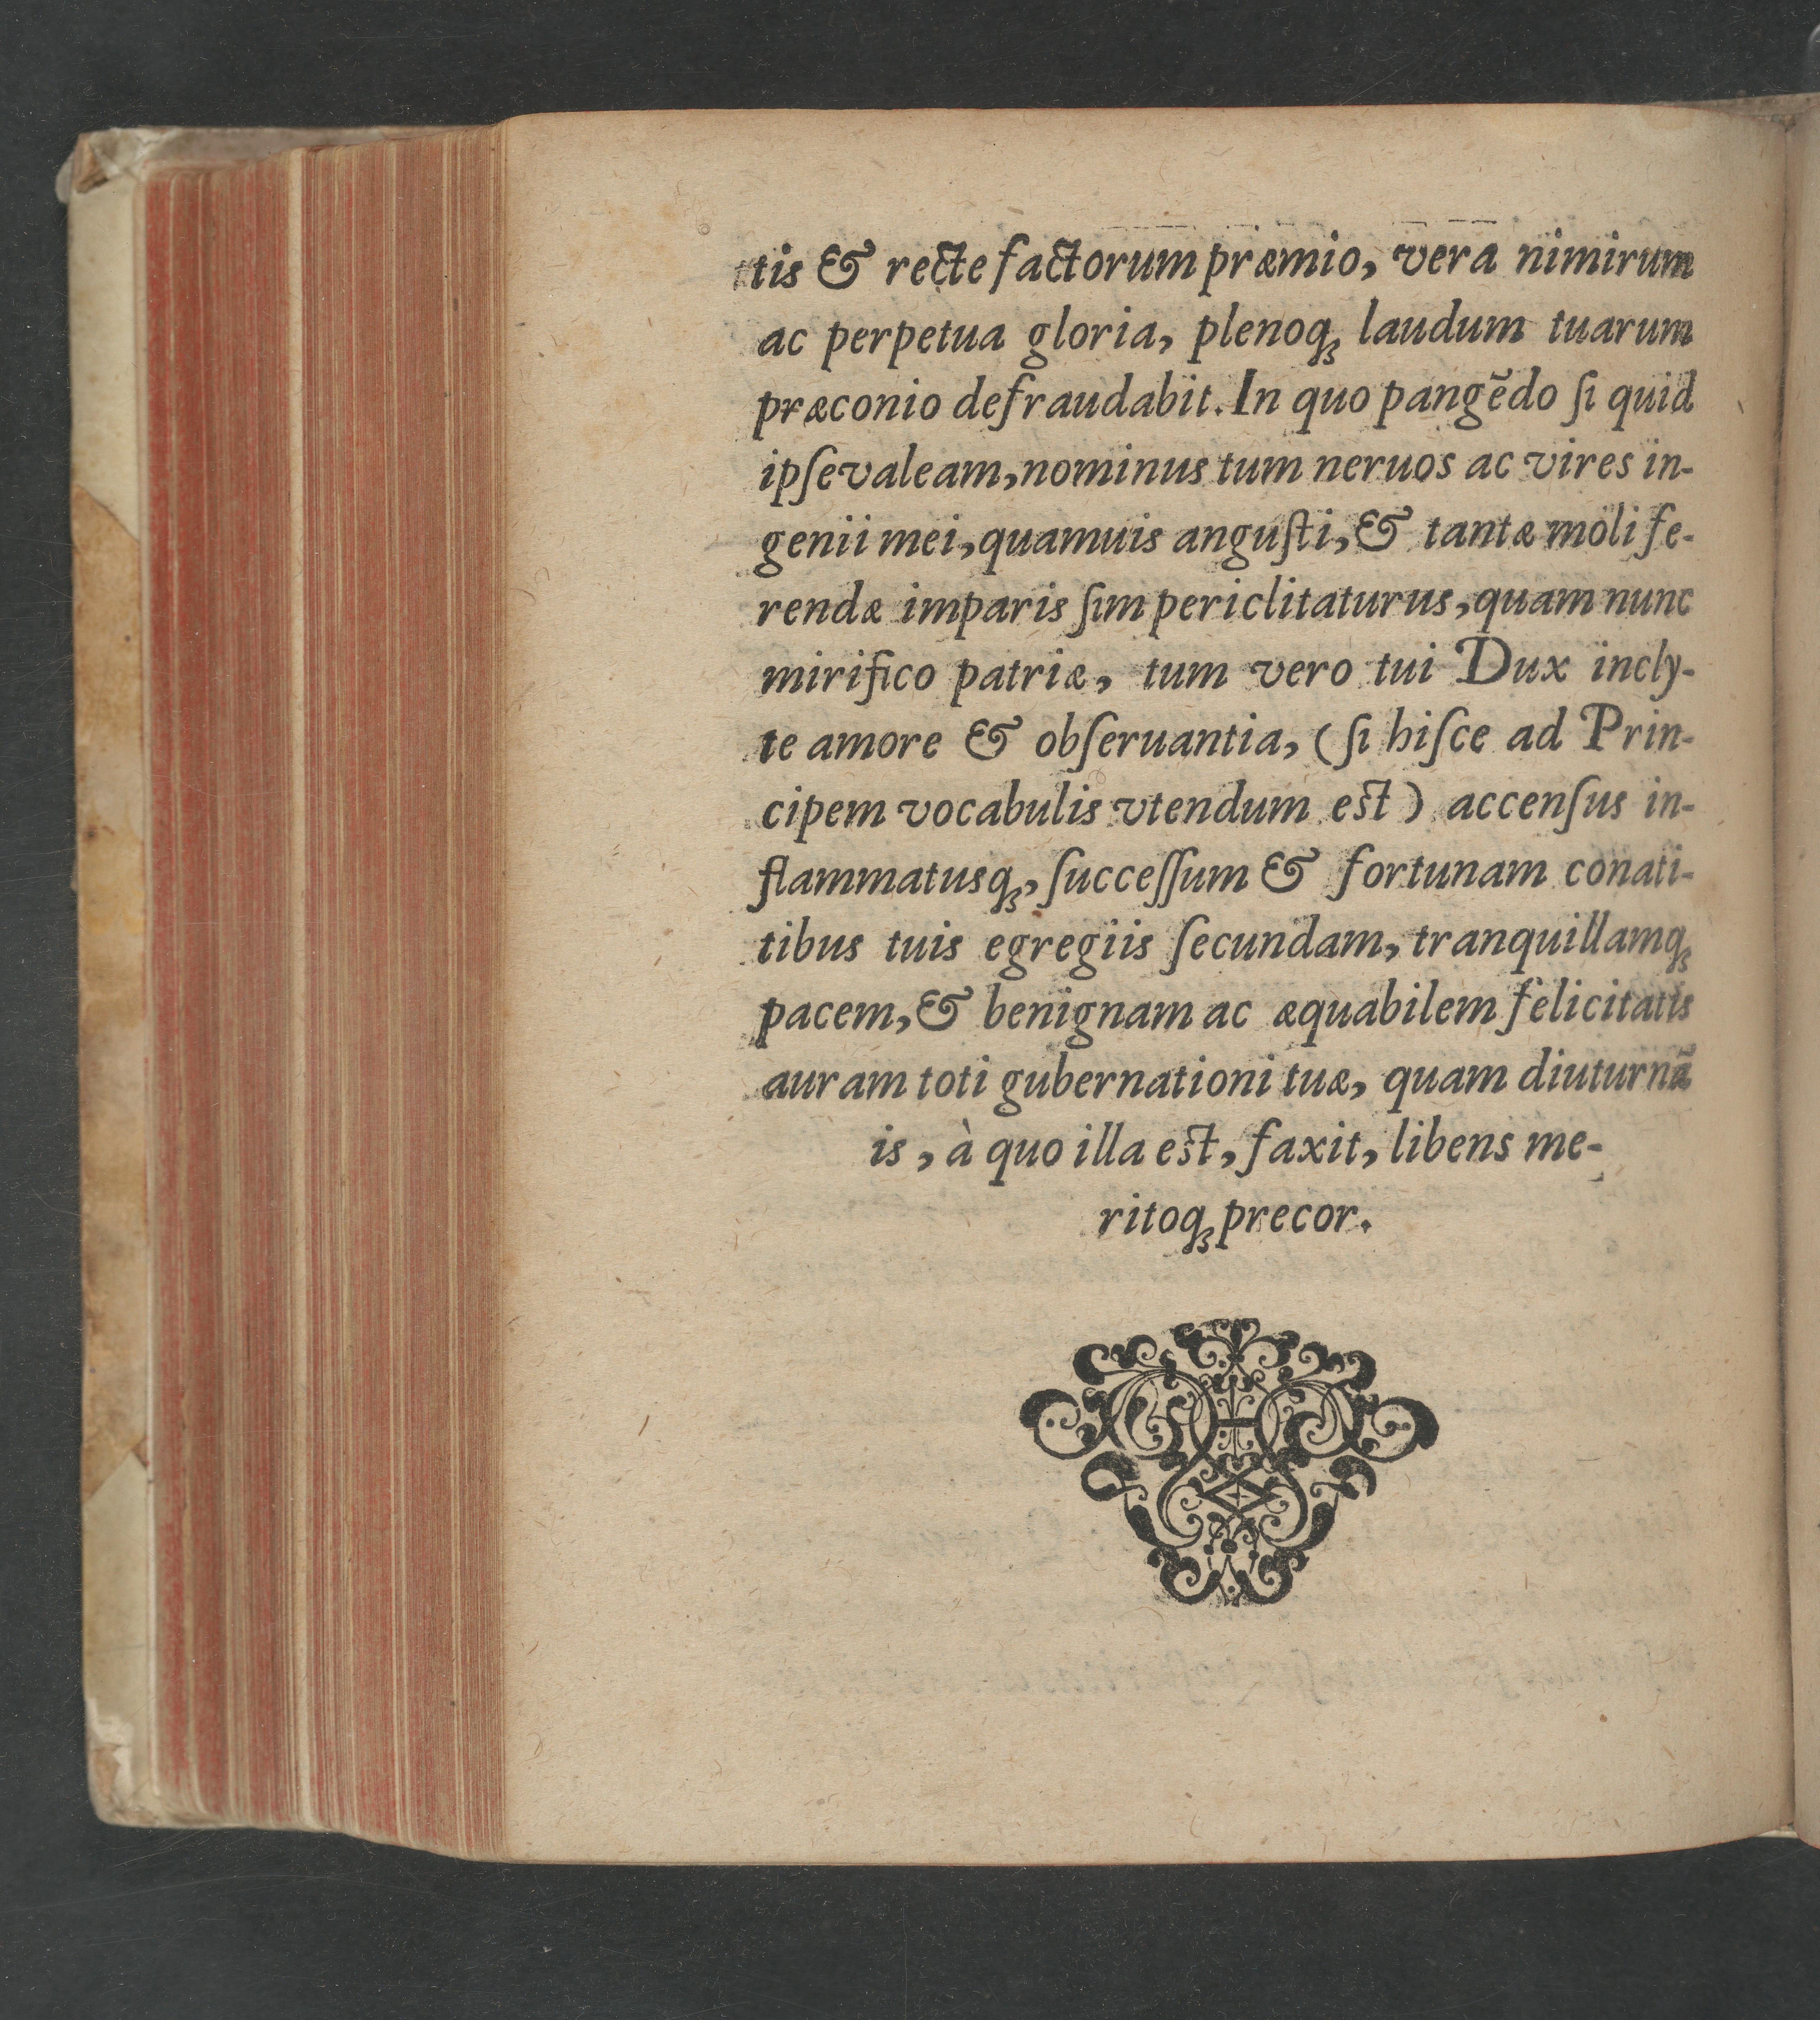 tis & recte factorum præmio, vera nimirum
ac perpetua gloria, plenoqꝫ laudum tuarum
præconio defraudabit. In quo pangẽdo ſi quid
ipſe valeam, nominus tum neruos ac vires in-
genii mei, quamuis anguſti, & tantæ moli fe-
rendæ imparis ſim periclitaturus, quam nunc
mirifico patriæ, tum vero tui Dux incly-
te amore & obſeruantia, (ſi hiſce ad Prin-
cipem vocabulis vtendum eſt) accenſus in-
flammatusqꝫ, ſucceſſum & fortunam conati-
tibus tuis egregiis ſecundam, tranquillamqꝫ
pacem, & benignam ac æquabilem felicitatis
auram toti gubernationi tuæ, quam diuturnã
is, à quo illa eſt, faxit, libens me-
ritoqꝫ precor.